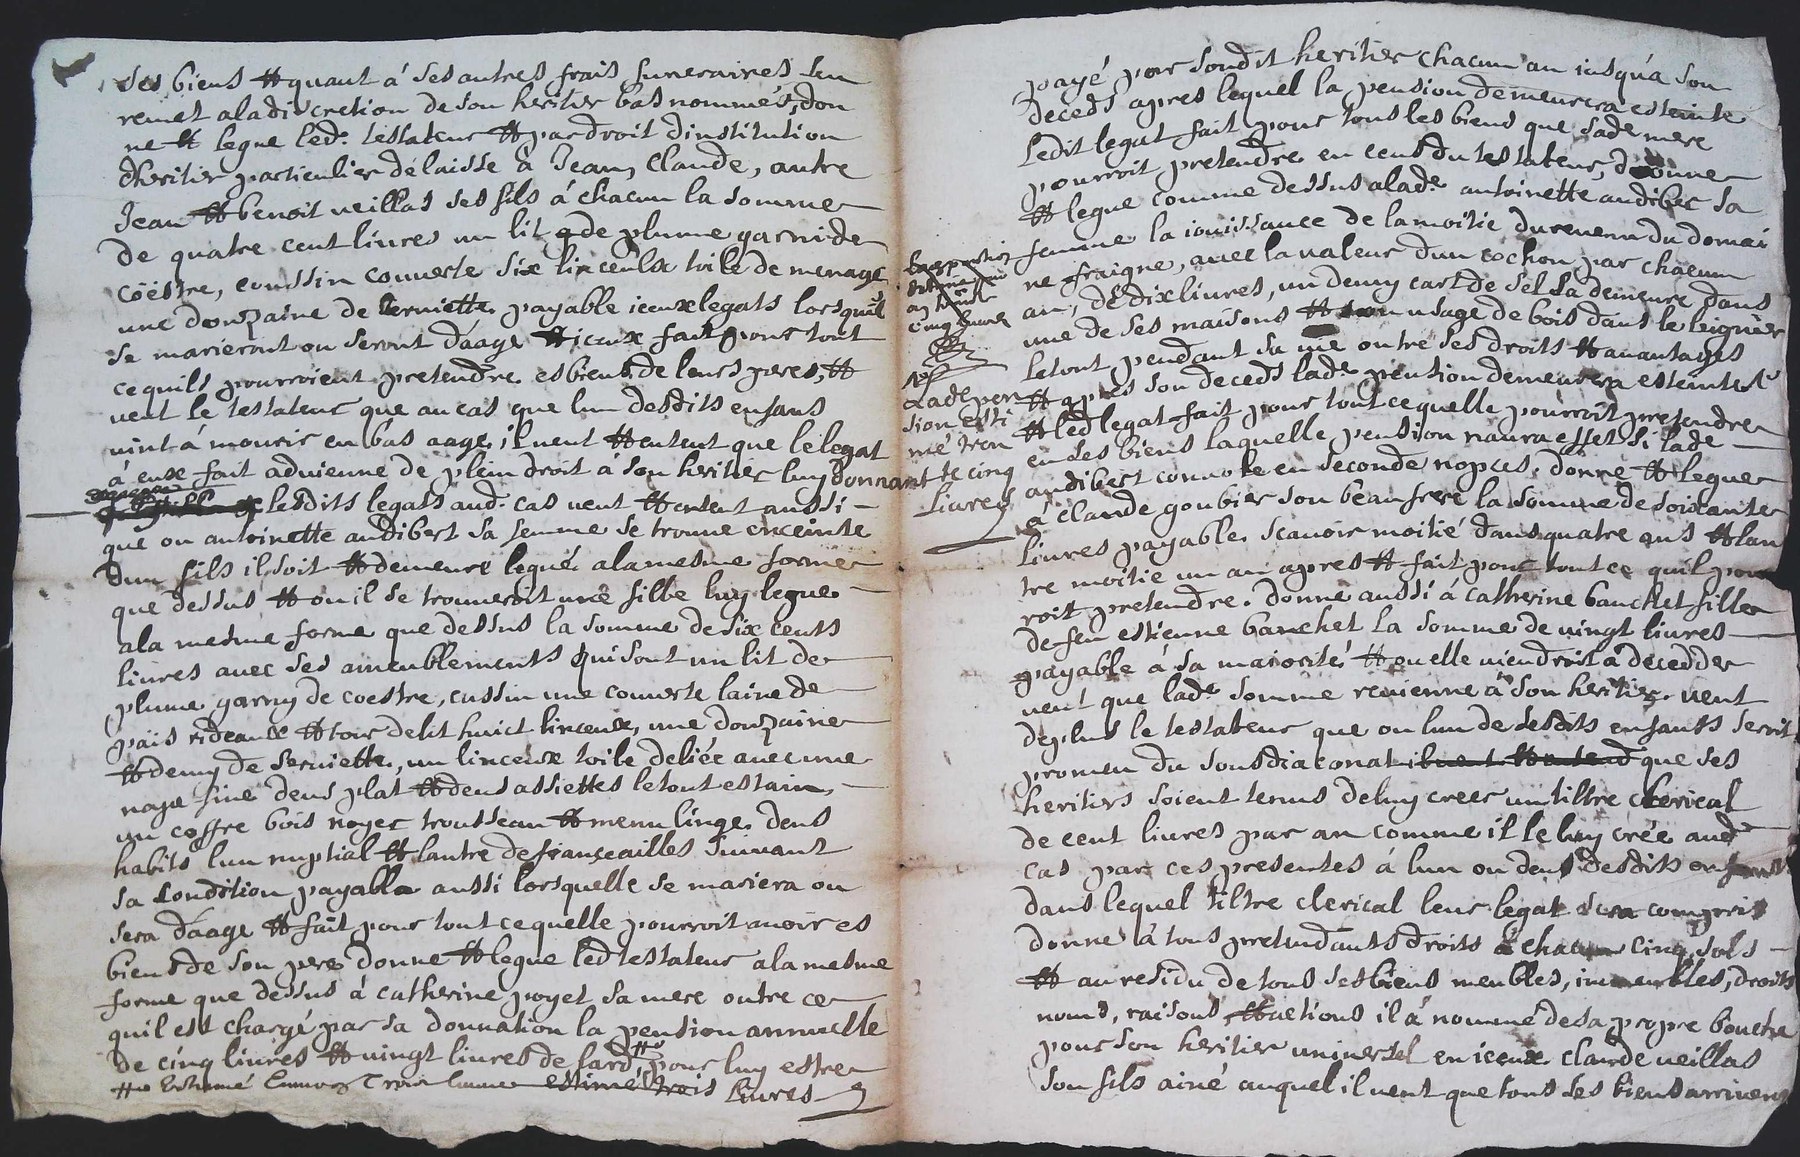 ses biens et quant á ses autres frais funeraires sen
remet a la discretion de son heritier bas nommés, don
ne et legue led. testateur et par droit dinstitution
dheritier particulier délaisse à Jean, Claude, autre
Jean et benoit veillas ses fils á chacun la somme
de quatre cent livres un lit de plume garni de
coëstre, coussin couverte six linceulx toile de menage
une douzaine de serviette payable iceux legats lorsquils
se marieront ou seront dáage et iceux fait pour tout
ce quils pourroient pretendre es biens de leurs peres, et
veut le testateur que au cas que lun desdits enfans
vint á mourir en bas aage, il veut et entent que le legat
á eux fait advienne de plein droit á son heritier luy donnant
lesdits legats aud. cas veut et entent aussi
que ou antoinette audibert sa femme se trouve enceinte
dun fils il soit et demeure legué a la mesme forme
que dessus et ou il se trouveroit une fille luy legue
a la mesme forme que dessus la somme de six cents
livres avec ses ameublements qui sont un lit de
plume garny de coestre, cussin une couverte laine de
païs rideaux et tour de lit huict linceux, une douzaine
et demy de serviette, un linceux toile deliée avec une
nape fine deus plat et deus assiettes le tout estain,
un coffre bois noyer trousseau et menu linge deus
habits lun nuptial et lautre de fiançailles suivant
sa condition payable aussi lorsquelle se mariera ou
sera dáage et fait pour tout ce quelle pourroit avoir es
biens de son pere donne et legue led testateur a la mesme
forme que dessus á catherine poyet sa mere outre ce
quil est chargé par sa donnation la pension annuelle
de cinq livres et vingt livres de lard pour luy estre
estimé trois livres
payé par sondit heritier chacun an iusquá son
deceds apres lequel la pension demeurera esteinte
ledit legat fait pour tous les biens que sade mere
pourroit pretendre en ceux du testateur, donne
et legue comme dessus a lade antoinette audibert sa
femme la iouissance de la moitie du revenu du domai
ne fraigne, avec la valeur dun cochon par chacun
an, de dix livres, un demy cart de sel sa demeure dans
une de ses maisons et usage de bois dans le leignier
le tout pendant sa vie outre ses droits et avantages
et apres son deceds lade pension demeurera esteinte
et led legat fait pour tout ce quelle pourroit pretendre
en ses biens laquelle pension naura effet si lade
audibert convole en seconde nopces, donne et legue
á claude goubier son beau frere la somme de soixante
livres payable scavoir moitié dans quatre ans et lau
tre moitie un an apres et fait pour tout ce quil pour
roit pretendre. donne aussi á catherine bauchet fille
de feu estienne bauchet la somme de vingt livres
payable á sa maiorité et ou elle viendroit á deceder
veut que lade somme revienne á son heritier. veut
de plus le testateur que ou lun de sesdits enfants seroit
promeu du sousdiaconat il veut et entend que ses
heritiers soient tenus de luy creer un tiltre clerical
de cent livres par an comme il le luy crée aud
cas par ces presentes á lun ou deus desdits enfants
dans lequel tiltre clerical leur legat sera compris
donne á tous pretendants droits á chacun cinq sols
et au residu de tous ses biens meubles, immeubles, droits
noms, raisons, et actions il á nommé de sa propre bouche
pour son heritier universel en iceux claude veillas
son fils ainé auquel il veut que tous ses biens arrivent
Lade pen
sion esti
mé tren
te cinq
livres